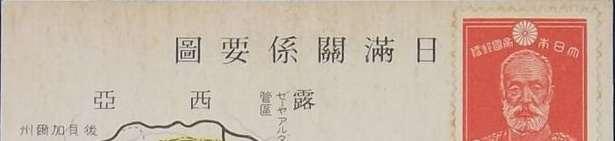 日滿關係要圖
露西亞
ゼーヤアルダ
管區
後貝加爾州
大日本帝國郵便